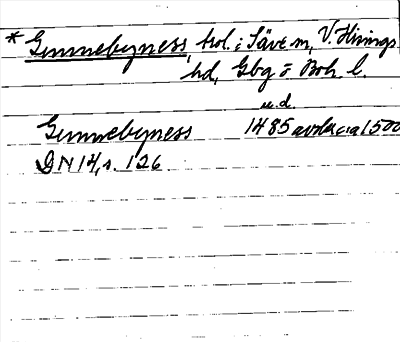 * Gunnebyness, trol. i Säve sn, V. Hisings
hd, Gbg o Boh. l.
u.d.
Gunnebyness 1485 avskr ca 1500
DN 14, s. 126